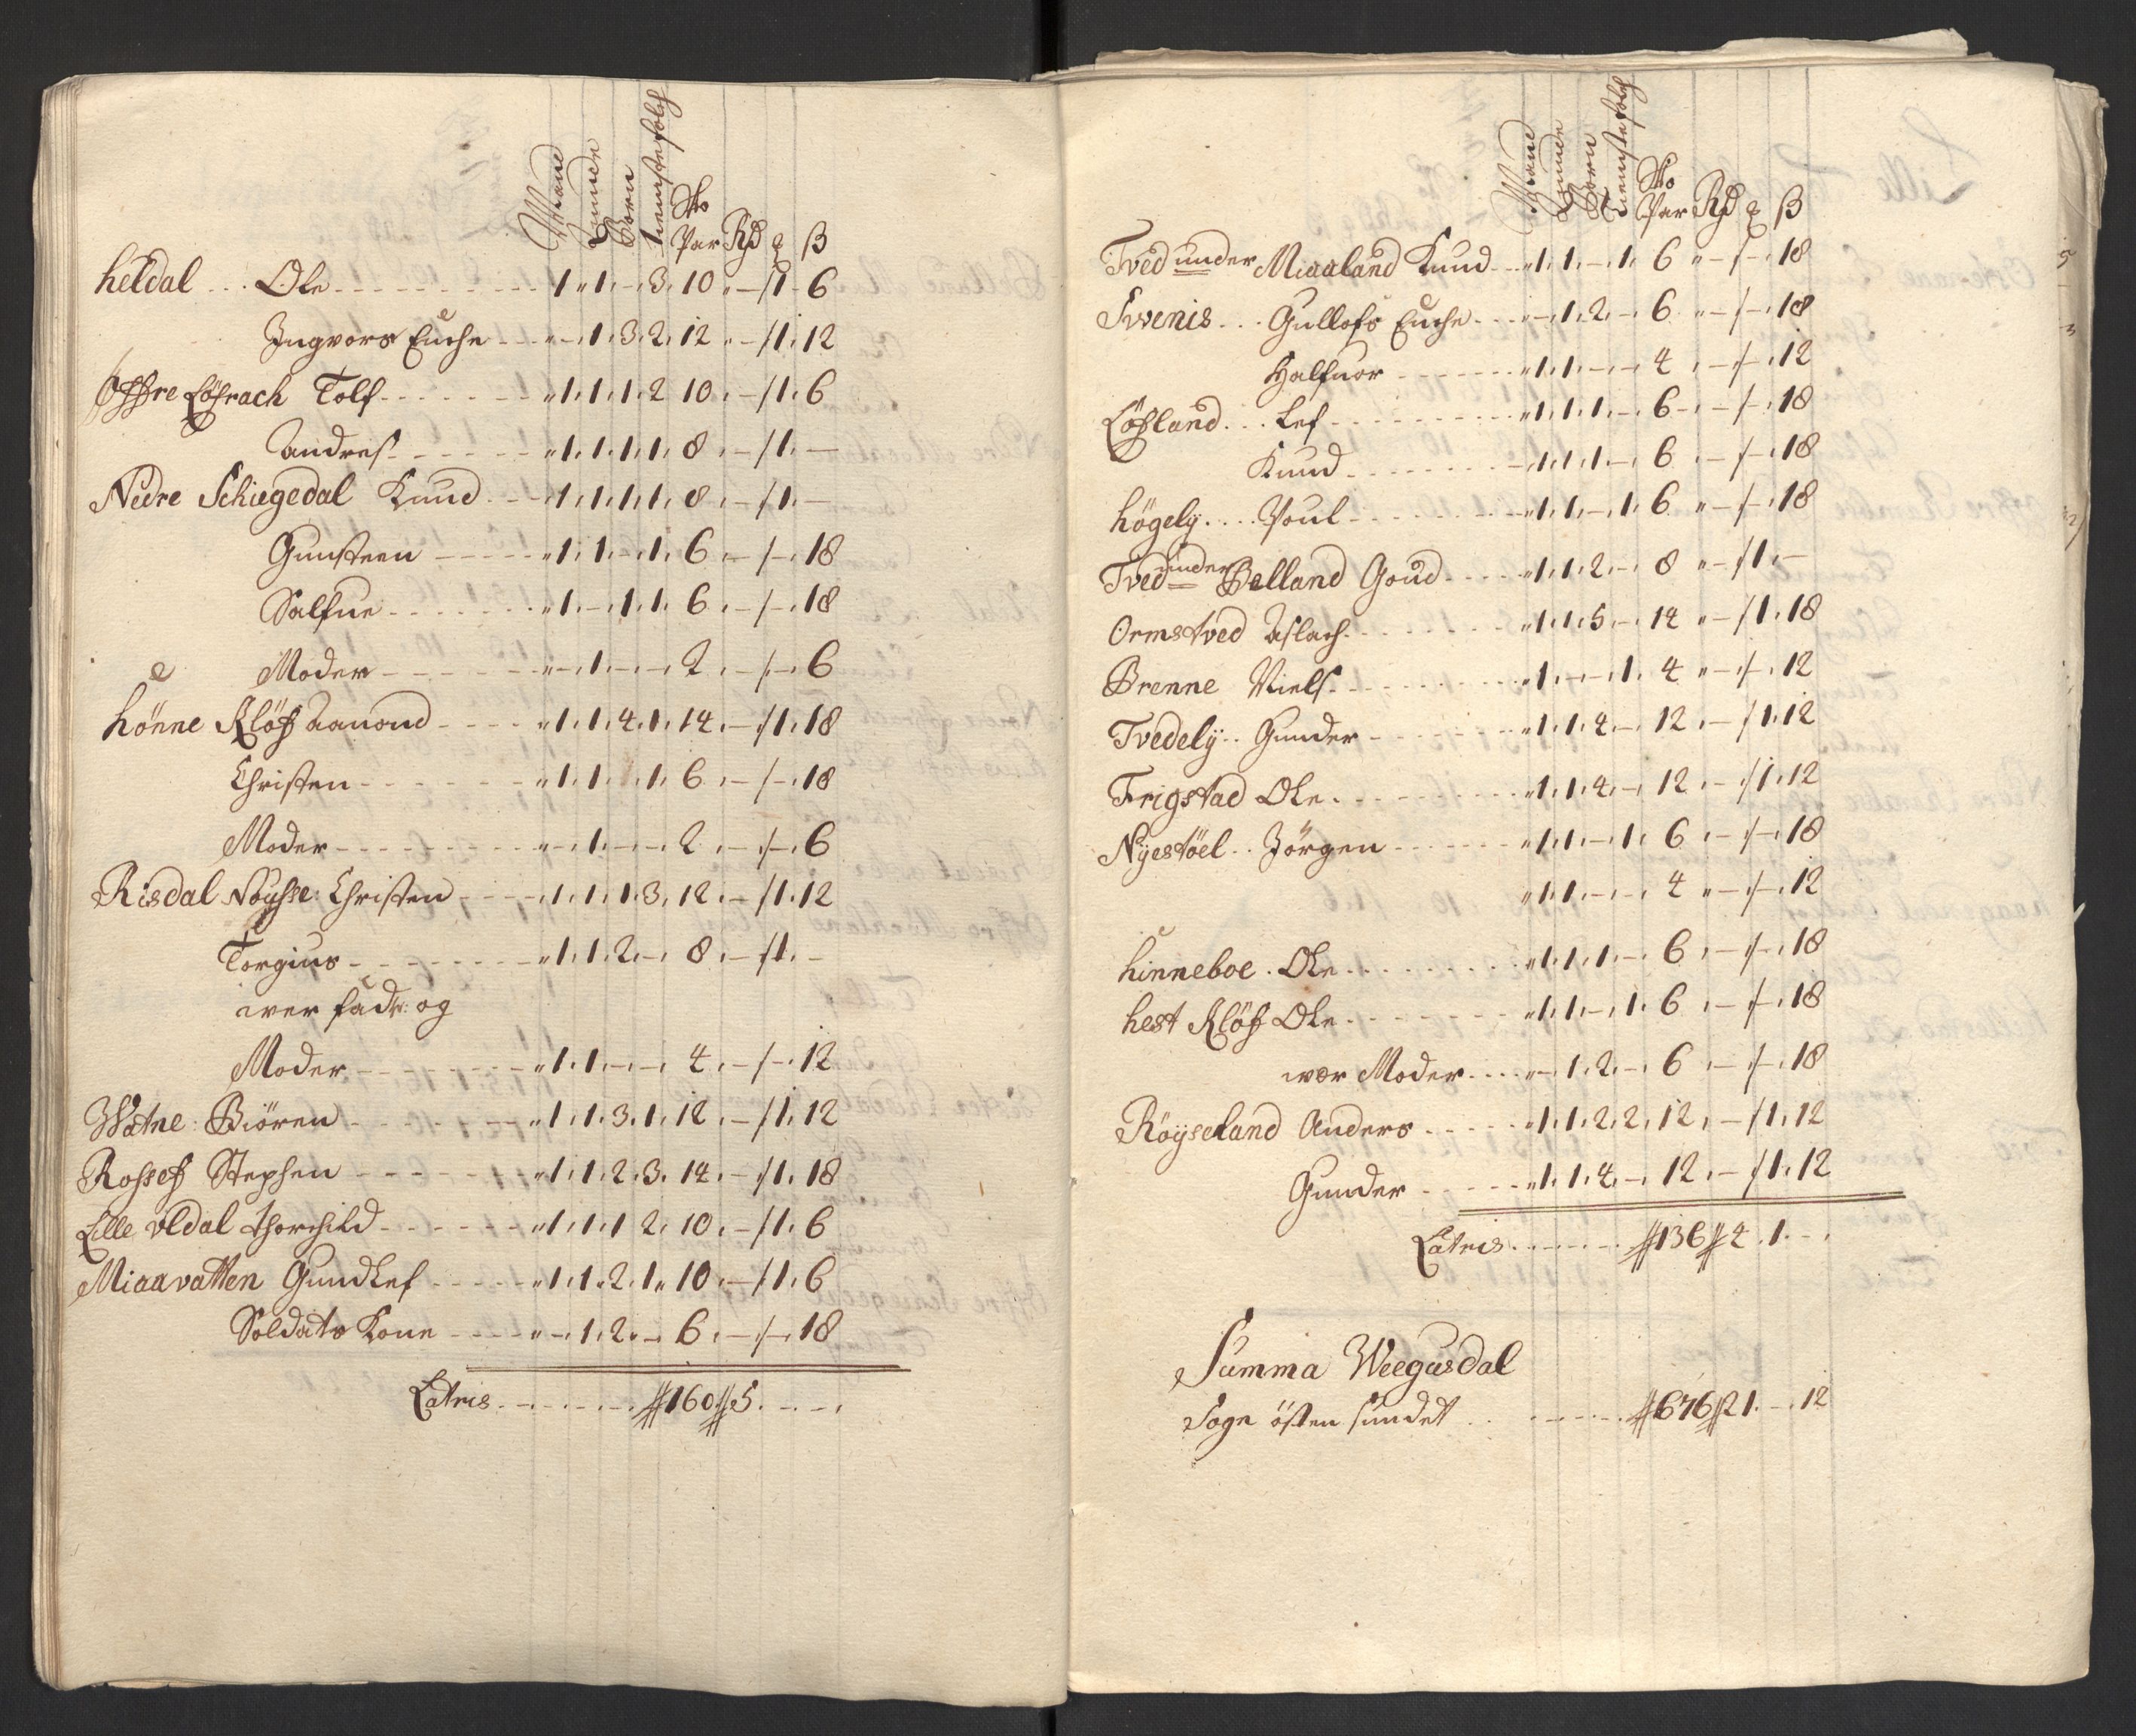 Mand Quinde Börn Tieenistefolch Sko Par Rd ₰ β
heldal Ole 1 1 - 3 10 - 1 6
Ingvors Enche - 1 3 2 12 - 1 12
Öffre Lössrach Tolf 1 1 1 2 10 - 1 6
Andres 1 1 1 1 8 - 1 -
Nedre Schiegedal Knud 1 1 1 1 8 - 1 -
Gunsteen 1 1 - 1 6 - - 18
Salfue 1 - 1 1 6 - - 18
Moder - 1 - - 2 - - 6
hönne Klöff Aanond 1 1 4 1 14 - 1 18
Christen 1 1 1 6 - - 18
Moder - 1 - - 2 - - 6
Risdal Nöysse: Christen 1 1 1 3 12 - 1 12
Torgius 1 1 2 - 8 - 1 -
wer fadr: og
Moder 1 1 - - 4 - - 12
Watne: Biören 1 1 3 1 12 - 1 12
Rossef Stephen 1 1 2 3 14 - 1 18
Lille Oldal Thorchild 1 1 1 2 10 - 1 6
Miaavatten Gundlef 1 1 2 1 10 - 1 6
Soldats Kone - 1 2 - 6 - - 18
Latris 160 5 - -
Mand Quinde Börn Tienistefolch Sko Par Rd ₰ β
Tved under Miaaland Knud 1 1 - 1 6 - - 18
Svenis Gullofs Enche - 1 2 - 6 - - 18
Halfuor 1 1 - - 4 - - 12
Lössland Lef 1 1 1 - 6 - - 18
Knud 1 1 1 - 6 - - 18
högelÿ Poul 1 1 - 1 6 - - 18
Tved under Belland Goud 1 1 2 - 8 - 1 -
Ormstved Aslach 1 1 5 - 14 - 1 18
Brenne Niels 1 - - 1 4 - - 12
Tvedelÿ Gunder 1 1 4 - 12 - 1 12
Frigstad Ole 1 1 4 - 12 - 1 12
Nÿestöel Jörgen 1 1 - 1 6 - - 18
1 1 - - 4 - - 12
hinneboe Ole 1 1 1 - 6 - - 18
hest Klöff Ole 1 1 - 1 6 - - 18
wor Moder - 1 2 - 6 - - 18
Röÿseland Anders 1 1 2 2 12 - 1 12
Gunder 1 1 4 - 12 - 1 12
Latris 136 4 1 -
Summa Weegusdal
Sogn östen sundet 676 21 - 12